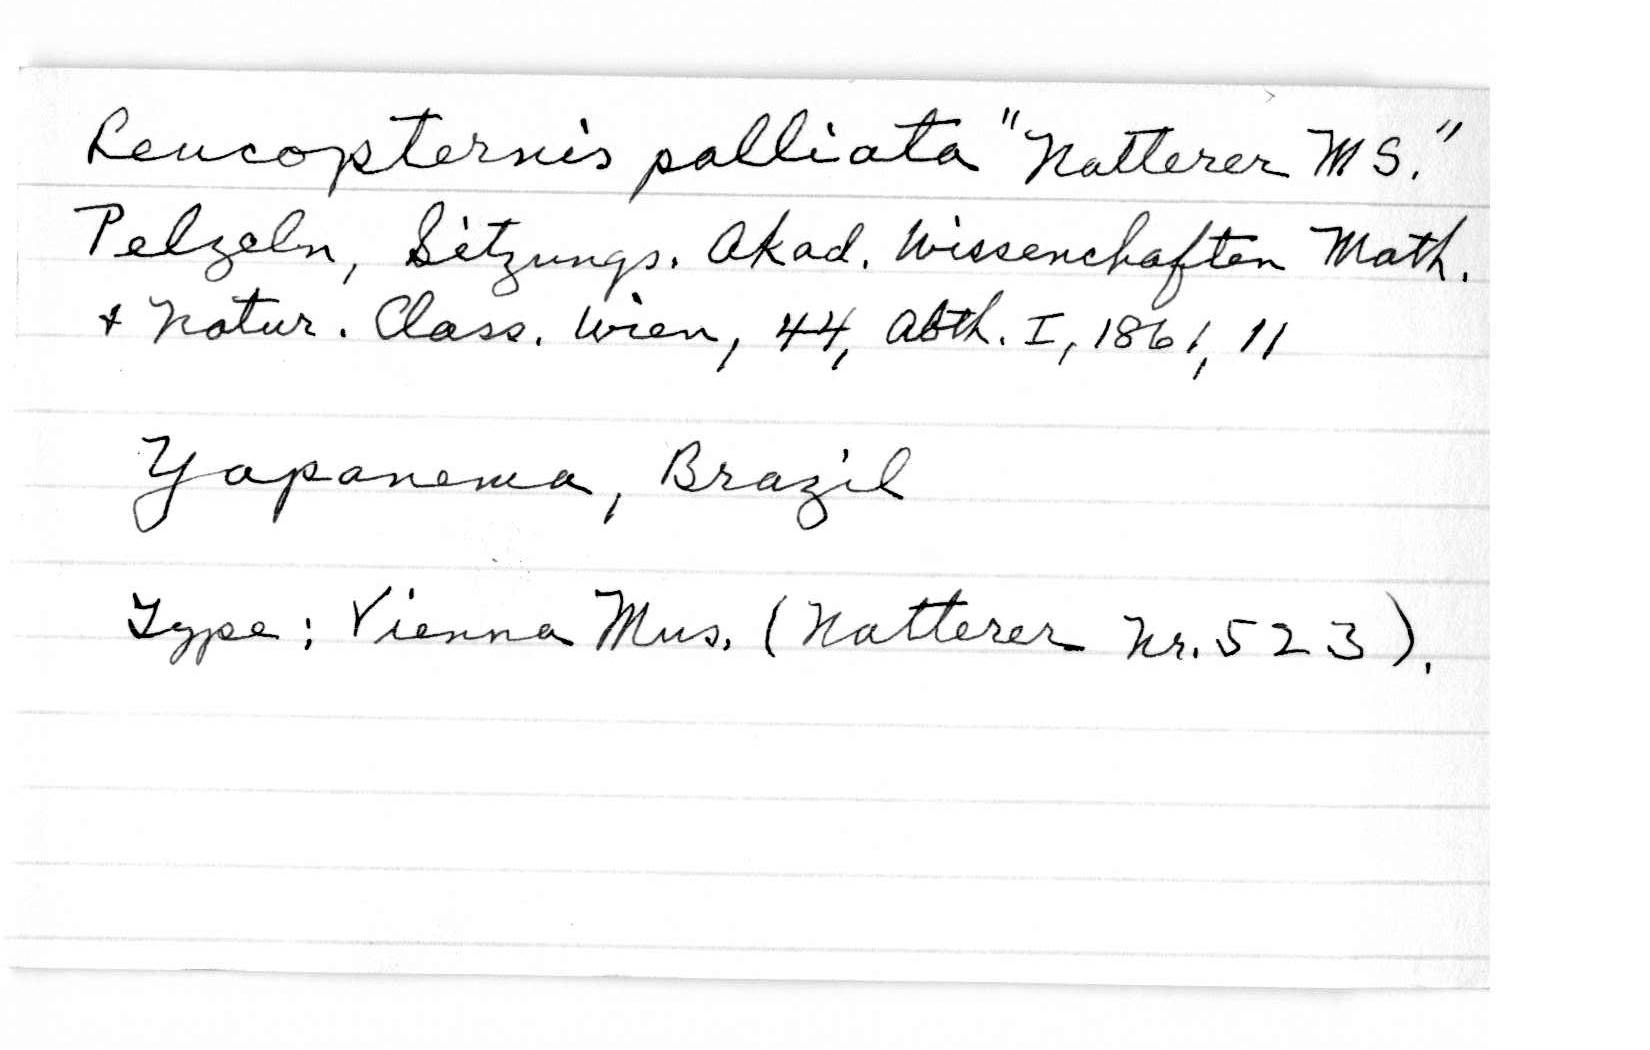 Leucopternis palliata "Natterer MS."
Pelzeln, Sitzungs. Akad. Wissenchaften Math.
& Natur. Class. Wien, 44, Abth. I, 1861, 11
Ypanema, Brazil
Type; Vienna Mus. (Natterer Nr. 523).